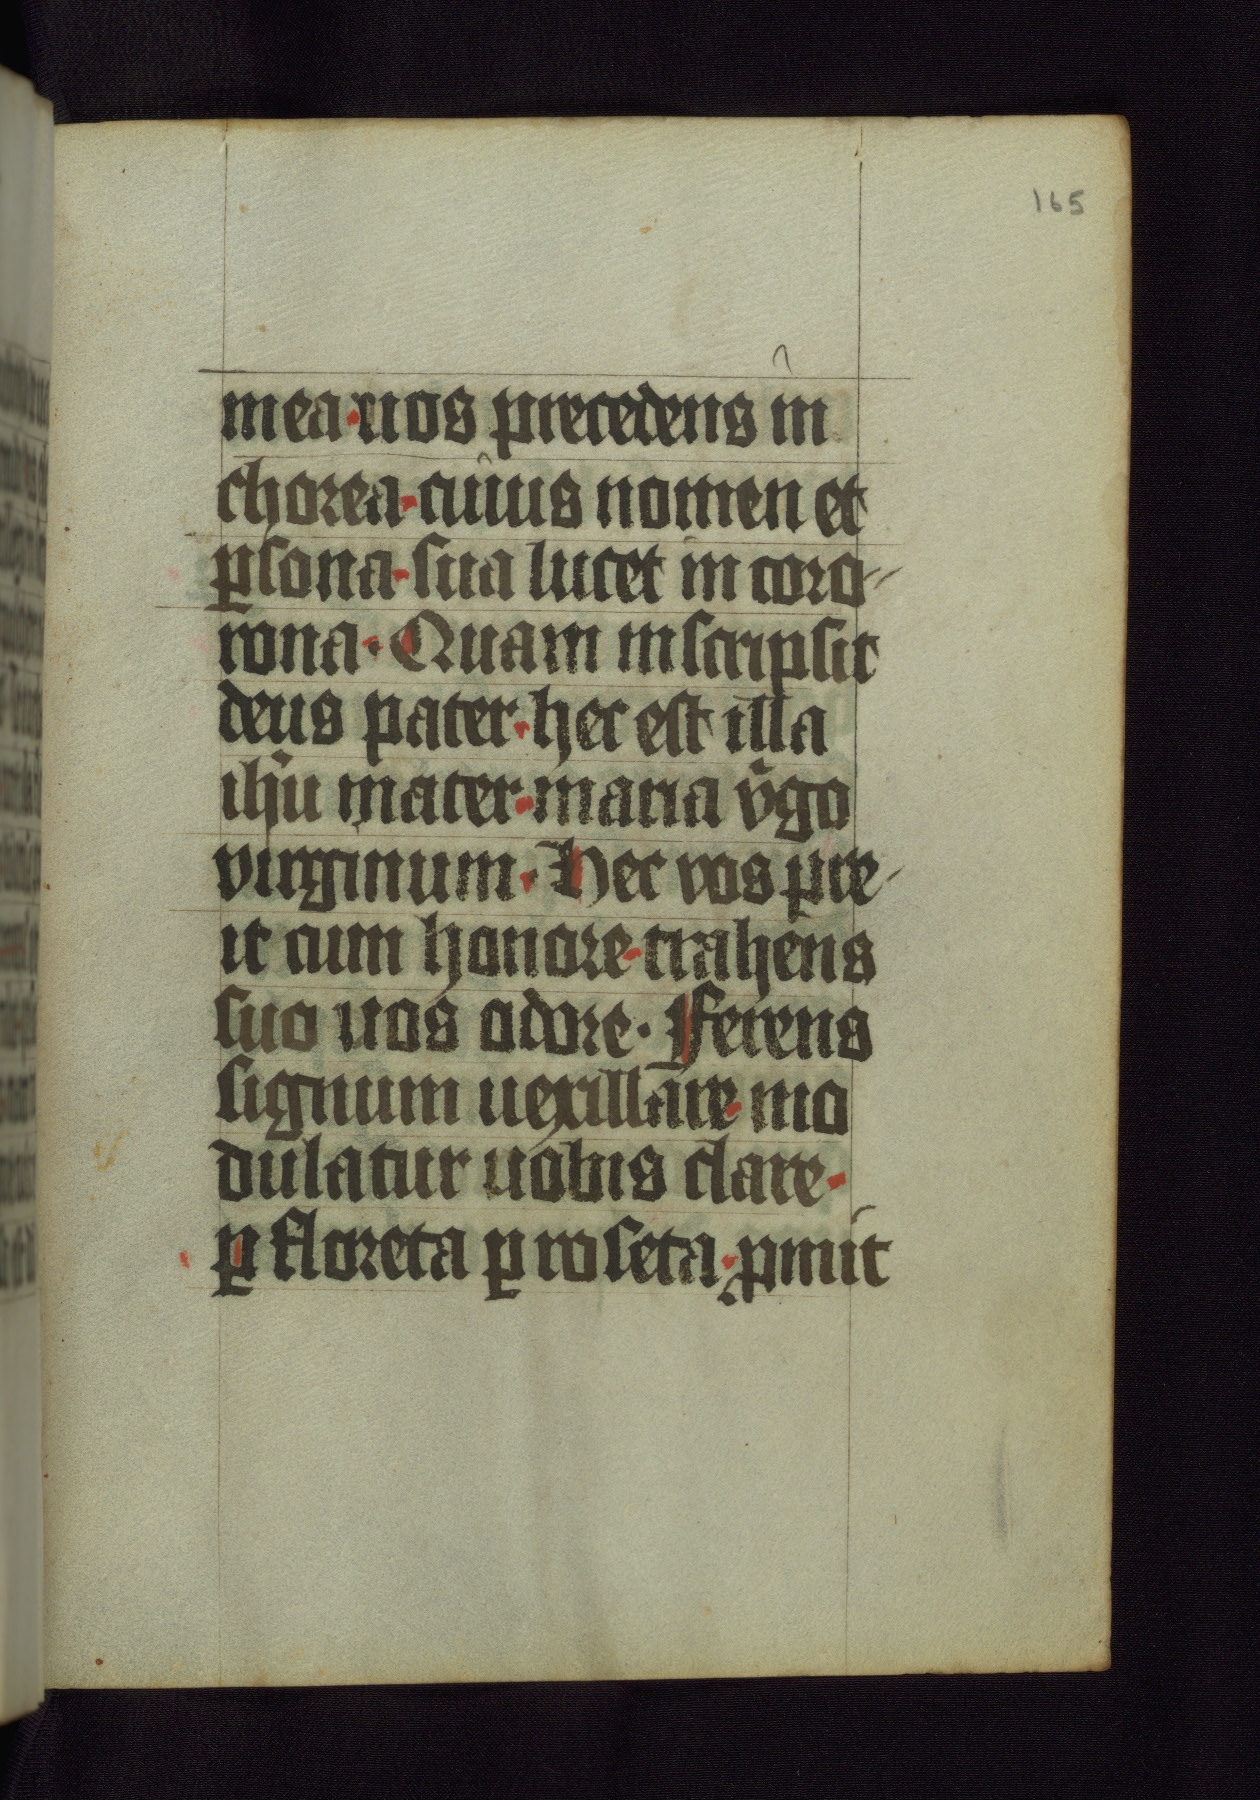 165
mea·uos precedens in
chorea·cuius nomen et
ꝑsona·sua lucet in coro-
rona·Quam inscripsit
deus pater·hec est illa
ihū mater·maria v̄go
virginum·Hec vos pre-
it cum honore·trahens
suo uos odore·Ferens
signum uexillare·mo
dulatur uobis clare·
ꝑ floreta ꝑ roseta·